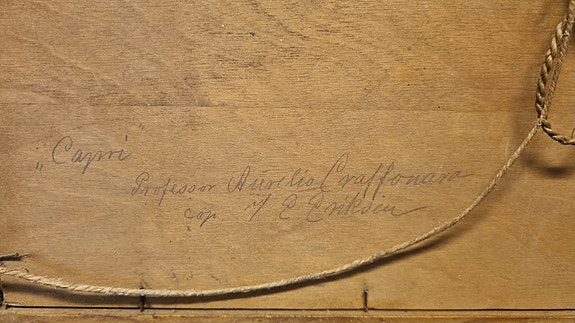 „Capri"
Professor Aurelio Craffonara
cop. v/ E Eriksen